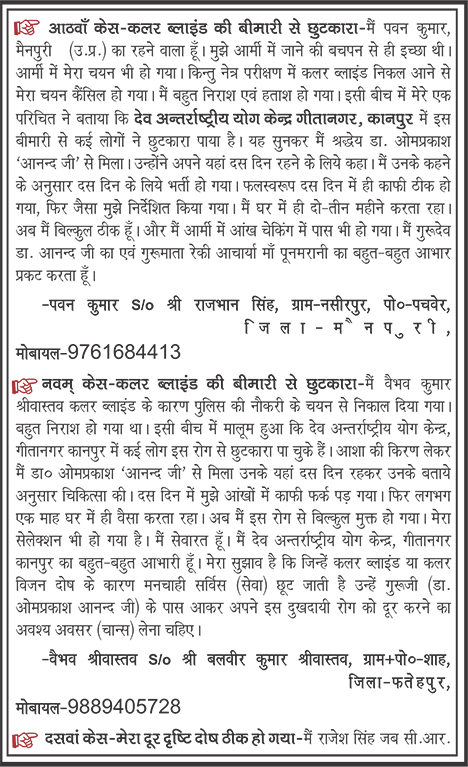 आठवाँ केस-कलर ब्लाइंड की बीमारी से छुटकारा-मैं पवन कुमार,
मैनपुरी (उ.प्र.) का रहने वाला हूँ। मुझे आर्मी में जाने की बचपन से ही इच्छा थी।
आर्मी में मेरा चयन भी हो गया। किन्तु नेत्र परीक्षण में कलर ब्लाइंड निकल आने से
मेरा चयन कैंसिल हो गया। मैं बहुत निराश एवं हताश हो गया। इसी बीच में मेरे एक
परिचित ने बताया कि देव अन्तर्राष्ट्रीय योग केन्द्र गीतानगर, कानपुर में इस
बीमारी से कई लोगों ने छुटकारा पाया है। यह सुनकर मैं श्रद्धेय डा. ओमप्रकाश
‘आनन्द जी’ से मिला। उन्होंने अपने यहां दस दिन रहने के लिये कहा। मैं उनके कहने
के अनुसार दस दिन के लिये भर्ती हो गया। फलस्वरूप दस दिन में ही काफी ठीक हो
गया, फिर जैसा मुझे निर्देशित किया गया। मैं घर में ही दो-तीन महीने करता रहा।
अब मैं बिल्कुल ठीक हूँ। और मैं आर्मी में आंख चेकिंग में पास भी हो गया। मैं गुरूदेव
डा. आनन्द जी का एवं गुरूमाता रेकी आचार्या माँ पूनमरानी का बहुत-बहुत आभार
प्रकट करता हूँ।
-पवन कुमार S/o श्री राजभान सिंह, ग्राम-नसीरपुर, पो०-पचवेर,
जिला-मैनपुरी,
मोबायल-9761684413
नवम् केस-कलर ब्लाइंड की बीमारी से छुटकारा-मैं वैभव कुमार
श्रीवास्तव कलर ब्लाइंड के कारण पुलिस की नौकरी के चयन से निकाल दिया गया।
बहुत निराश हो गया था। इसी बीच में मालूम हुआ कि देव अन्तर्राष्ट्रीय योग केन्द्र,
गीतानगर कानपुर में कई लोग इस रोग से छुटकारा पा चुके हैं। आशा की किरण लेकर
मैं डा० ओमप्रकाश ‘आनन्द जी’ से मिला उनके यहां दस दिन रहकर उनके बताये
अनुसार चिकित्सा की। दस दिन में मुझे आंखों में काफी फर्क पड़ गया। फिर लगभग
एक माह घर में ही वैसा करता रहा। अब मैं इस रोग से बिल्कुल मुक्त हो गया। मेरा
सेलेक्शन भी हो गया है। मैं सेवारत हूँ। मैं देव अन्तर्राष्ट्रीय योग केन्द्र, गीतानगर
कानपुर का बहुत-बहुत आभारी हूँ। मेरा सुझाव है कि जिन्हें कलर ब्लाइंड या कलर
विजन दोष के कारण मनचाही सर्विस (सेवा) छूट जाती है उन्हें गुरूजी (डा.
ओमप्रकाश आनन्द जी) के पास आकर अपने इस दुखदायी रोग को दूर करने का
अवश्य अवसर (चान्स) लेना चहिए।
-वैभव श्रीवास्तव S/o श्री बलवीर कुमार श्रीवास्तव, ग्राम+पो०-शाह,
जिला-फतेहपुर,
मोबायल-9889405728
दसवां केस-मेरा दूर दृष्टि दोष ठीक हो गया-मैं राजेश सिंह जब सी.आर.